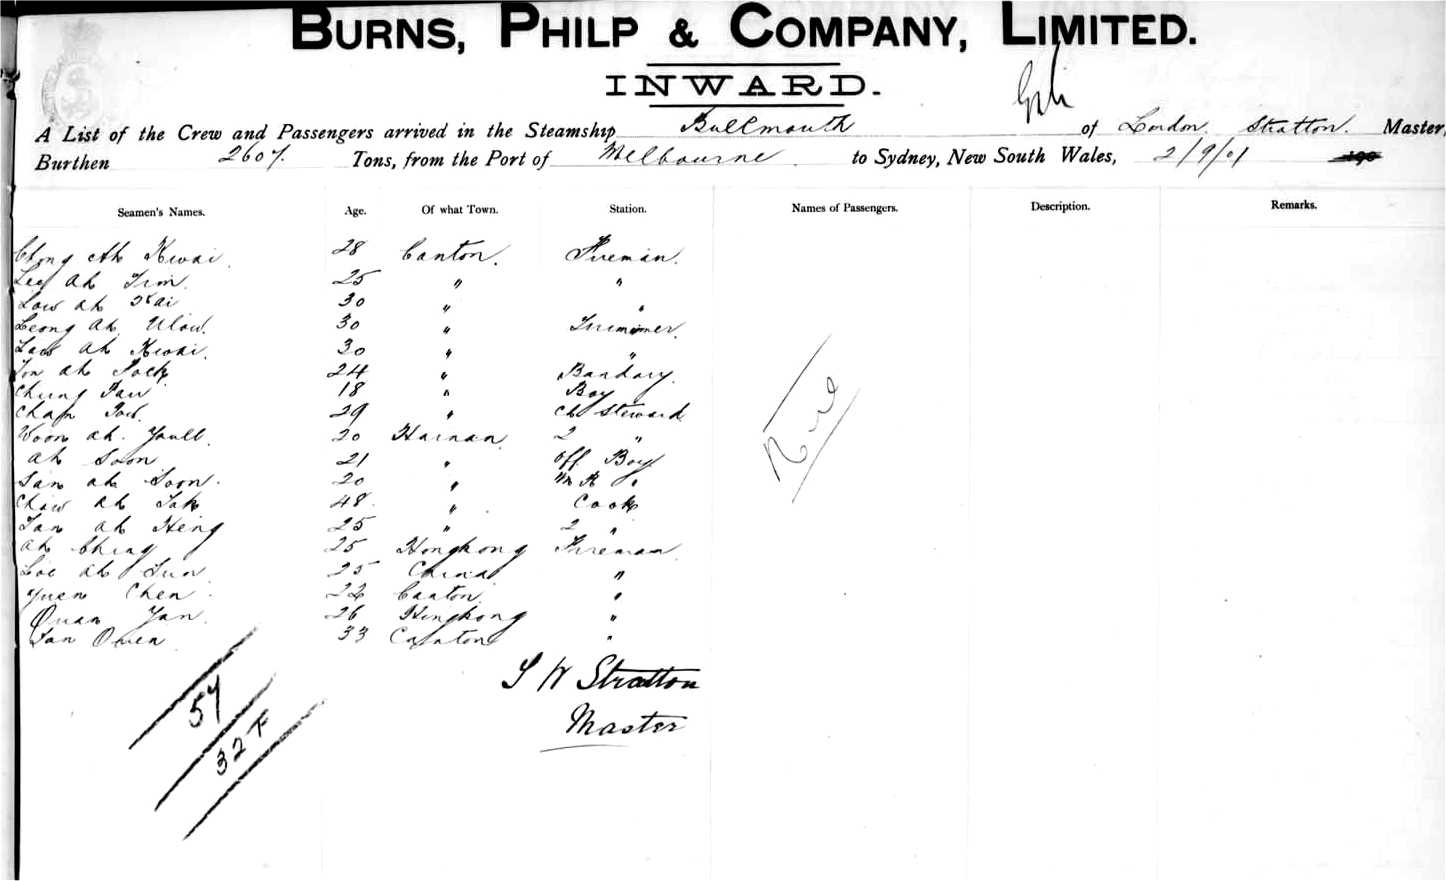 BURNS, PHILP & COMPANY, LIMITED.
INWARD.
A List of the Crew and Passengers arrived in the Steamship Bullmouth of London. Stratton. Master,
Burthen 2607. Tons, from the Port of Melbourne to Sydney, New South Wales, 2/9/01 190
Seamen's Names. Age. Of what Town. Station. Names of Passengers. Description. Remarks.
Chong Ah Kwai. 28 Canton. Fireman.
Lee Ah Tim. 25 " "
Low Ah Kai 30 " "
Leong Ah 30 " Trimmer.
Law Ah Kwai. 30 " "
Ah 24 " Bandary.
Chung 18 " Boy
29 " Ch Steward
Ah. 20 Hainan 2 "
Ah Soon 21 " Off Boy
San Ah Soon. 20 " "
Chow Ah 48. " Cook
Tan Ah Heng 25 " 2 "
Ah Ching 25 Hongkong Fireman
Ah 25 China "
Yuen Chen. 22 Canton "
Quan Yan. 26 Hongkong "
Tan Owen. 33 Canton "
Nil
S W Stratton
Master
57
32 +